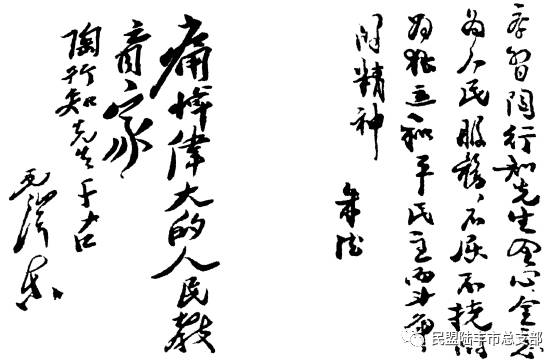 学習陶行知先生全心全意
为人民服務,不屈不撓的
为獨立和平民主而斗争
的精神
朱德
痛悼偉大的人民教
育家
陶行知先生千古
毛澤東
民盟陆丰市总支部